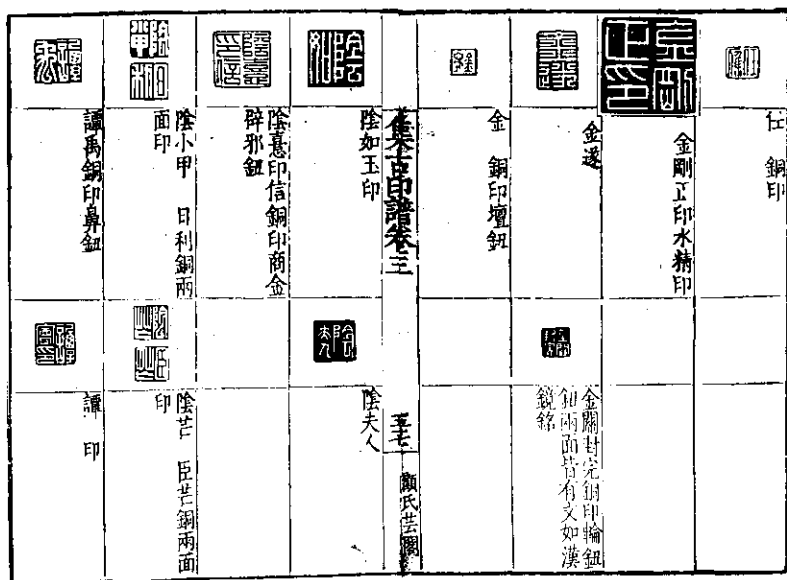 任 銅印
金剛正印水精印
金遂
金關封完銅印輪鈕
兩面皆有文如漢
鏡銘
金 銅印壇鈕
集古印譜卷三
五七
顧氏芸閣
陰如玉印
陰夫人
陰憙印信銅印商金
辟邪鈕
陰小甲 日利銅兩
面印
陰芒 臣芒銅兩面
印
譚禹銅印鼻鈕
譚 印